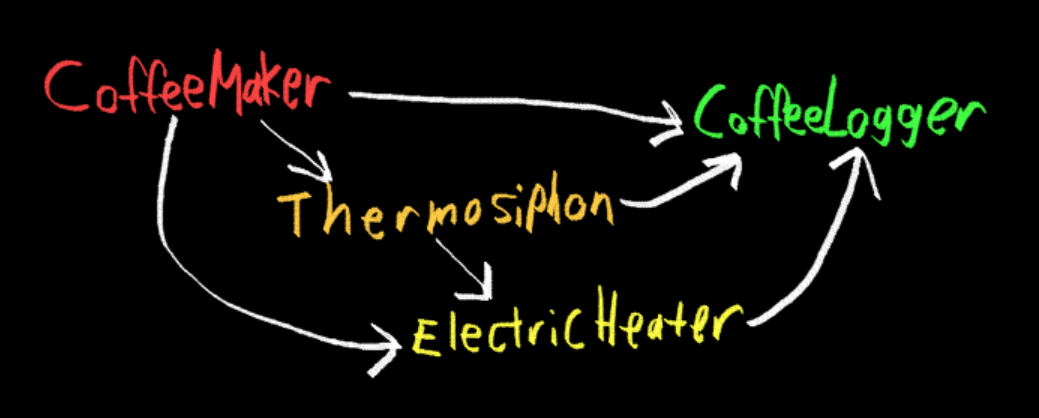 CoffeeMaker
CoffeeLogger
Thermosiphon
ElectricHeater